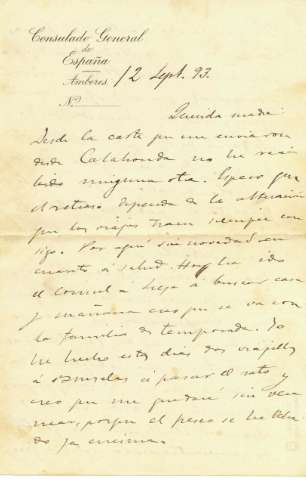 Consulado General
de
España
Amberes 12 Sept. 93.
N.º
Querida madre:
Desde la carta que me enviaron
desde Calahonda no he reci
bido ninguna otra. Espero que
el retraso dependa de la alteración
que los viajes traen siempre con
sigo. Por aquí sin novedad en
cuanto á salud. Hoy ha ido
el Consul á Lieja á buscar casa
y mañana creo que se va con
la familia de temporada. Yo
he hecho estos días dos viajes
á Bruselas á pasar el rato y
creo que me quedaré sin ver
mas, porque el peso se ha
do ya encima.